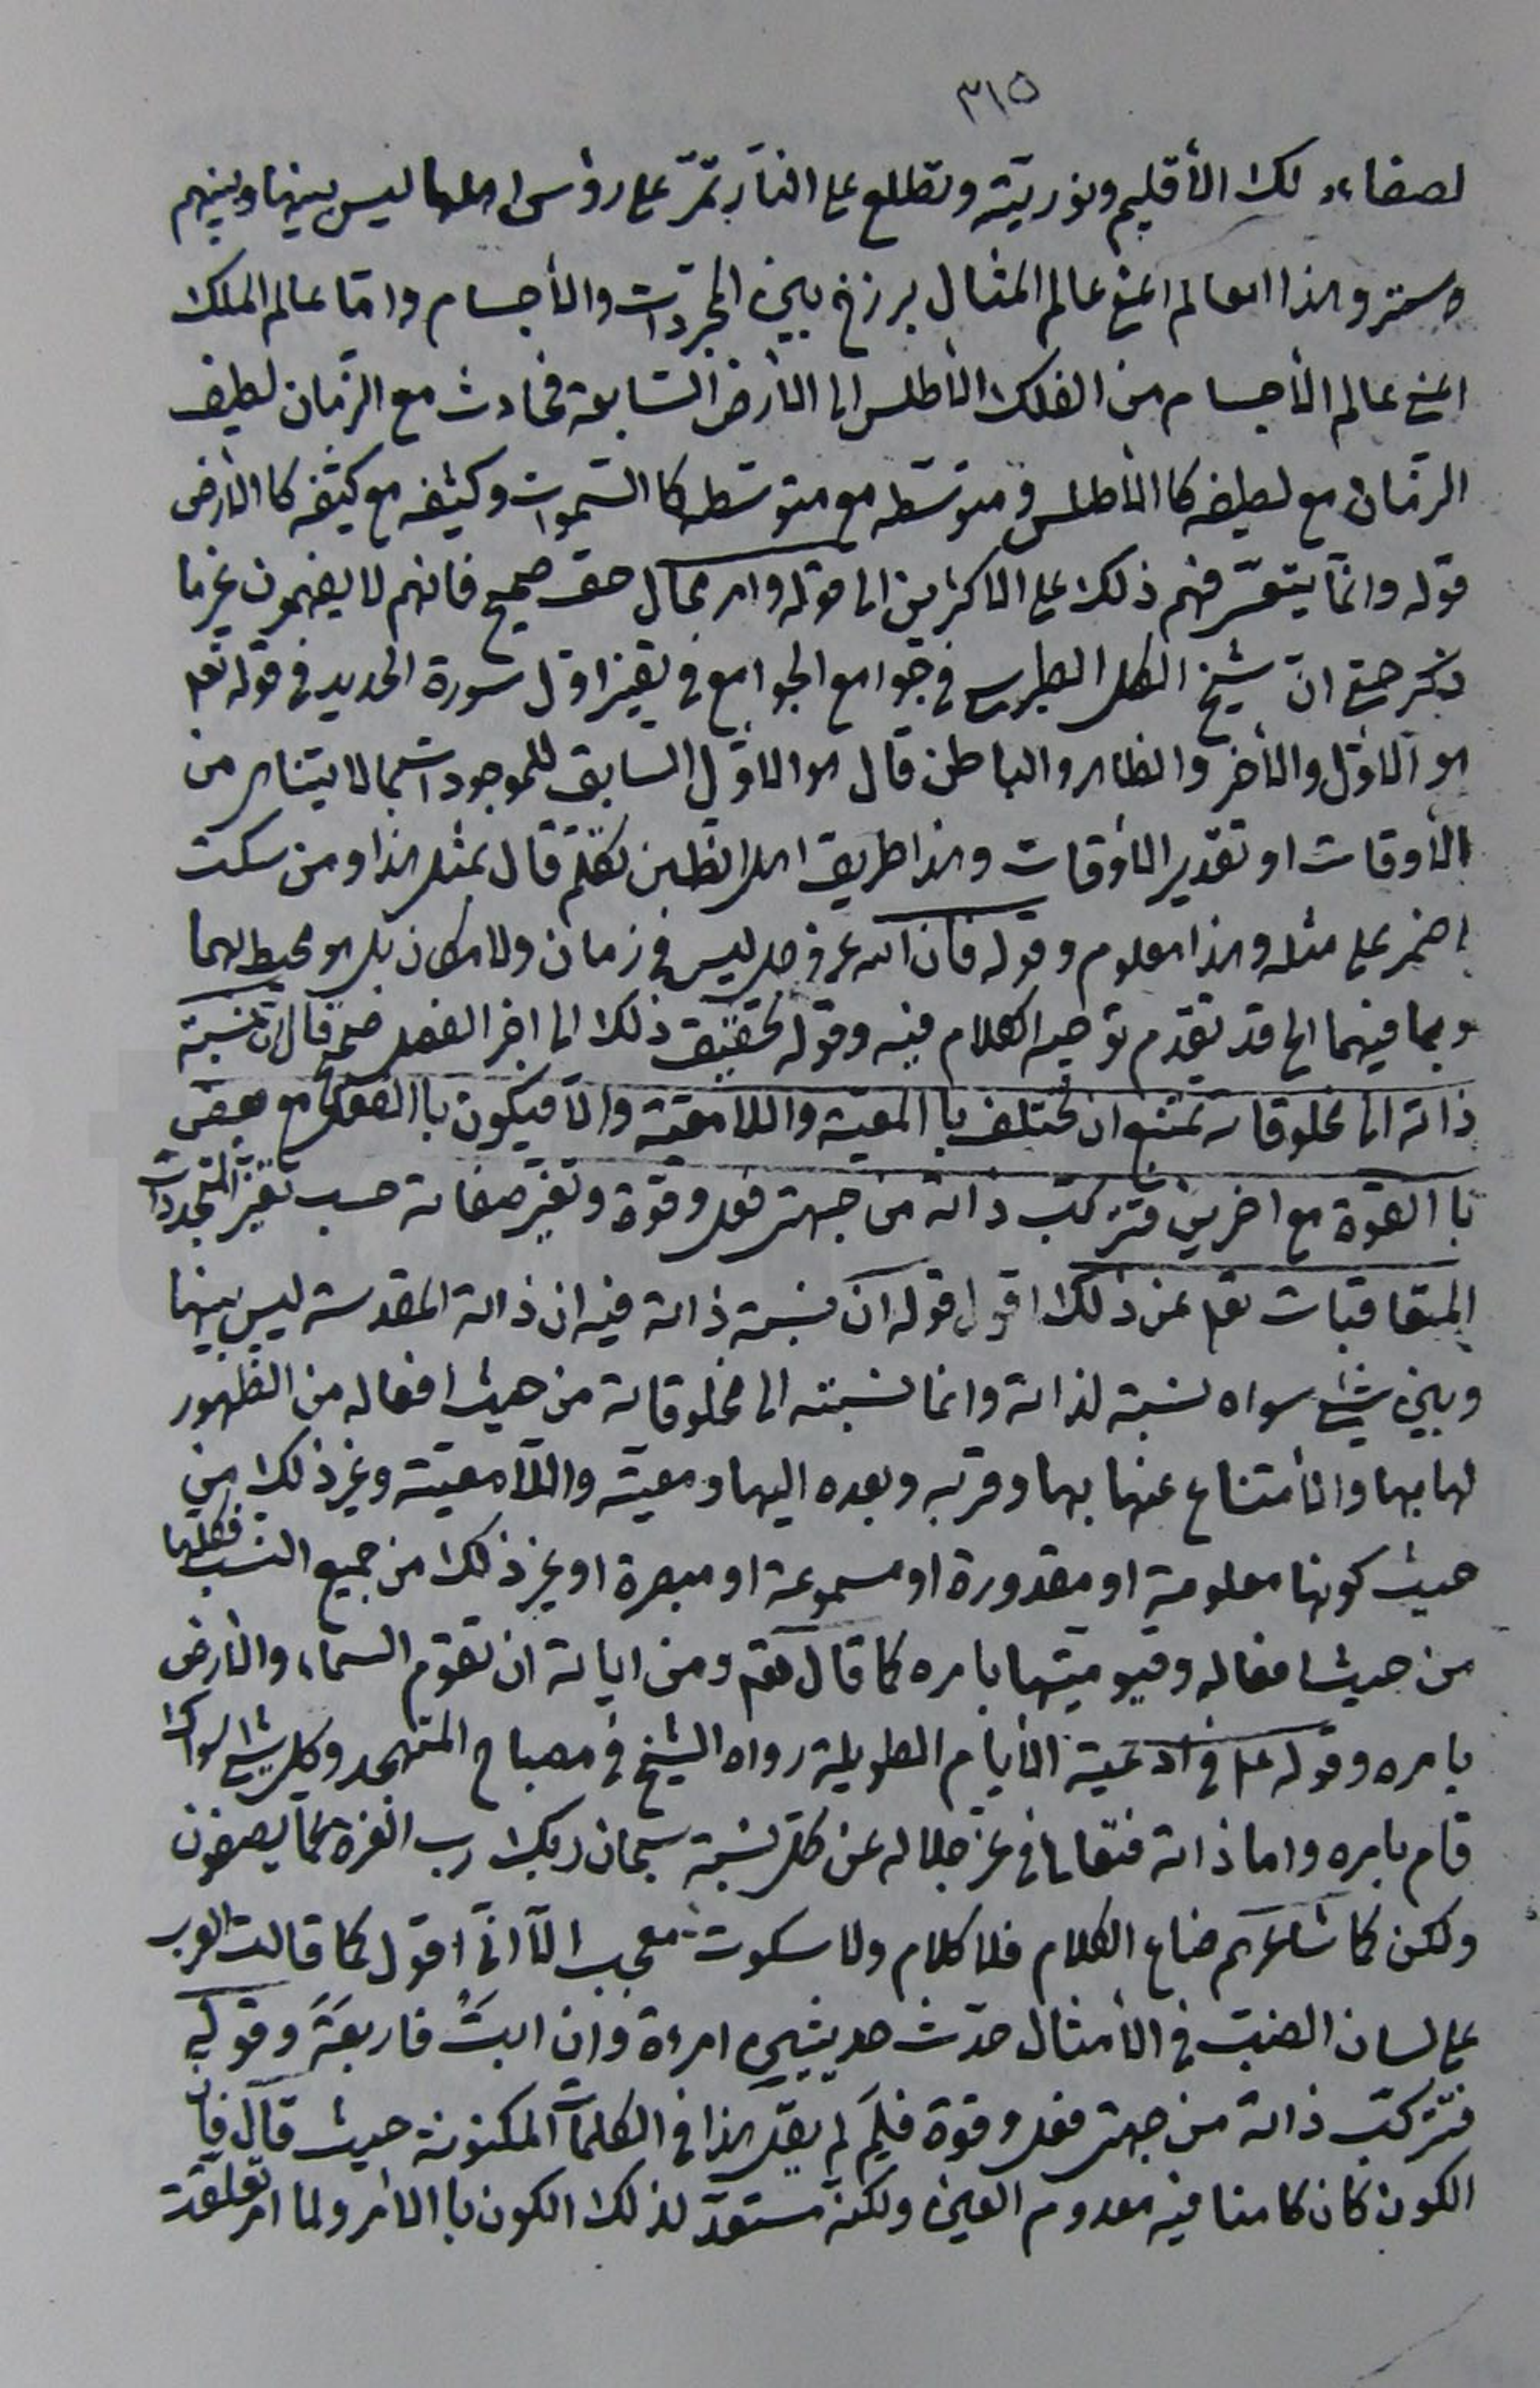 ٣١٥
لصفاء لك الأقليم ونوريته وتطلع على النار تمرّ على رؤس اهلها ليس بينها وبينهم
وستر وهذا العالم اعنى عالم المثال برزخ بين المجردات والأجسام وامّا عالم الملك
اعنى عالم الأجسام من الفلك الأطلس الى الأرض السّابعة فحادث مع الزمان لطيف
الزمان مع لطيفه كالأطلس ومتوسّطه مع متوسّطه كالسّموات وكثيفه مع كثيفه كا الأرض
قوله وانّما يتعسّر فهم ذلك على الاكثرين الى قوله وامر محال حق صحيح فانهم لا يفهمون غير ما
ذكر حتى انّ شيخ الكل الطبرسى فى جوامع الجوامع فى تفسير اوّل سورة الحديد فى قوله تعه
هو الاوّل والأخر والظاهر والباطن قال هو الاوّل السابق للموجودات بما لا يتناهى من
الأوقات او تقدير الأوقات وهذا طريق اهل الظاهر تكلّم قال بمثل هذا ومن سكت
اضمر على مثله وهذا معلوم وقوله فان اللّه عزوجل ليس فى زمان ولا مكان بل هو محيط بهما
وبما فيهما الخ قد تقدم توجيه الكلام فيه وقوله تحقيق ذلك الى اخر الفصل قال انّ نسبة
ذاته الى مخلوقاته تمتنع ان تختلف با المعيّة واللّا معيّة والّا فيكون با الفعل مع بعض
با القوة مع اخرين فتتركّب ذاته من جهتى فعل وقوة وتغيّر صفاته حسب تغيّر المتجددات
المتعاقبات تعه عن ذلك اقول قوله انّ نسبة ذاته فيه ان ذاته المقدسة ليس بينها
وبين شئ سواه نسبة لذاته وانما نسبته الى مخلوقاته من حيث افعاله من الظهور
لها بها والأمتناع عنها بها وقربه وبعده اليها ومعيّته واللّا معيّته وغير ذلك من
حيث كونها معلومة او مقدورة او مسموعة او مبصرة او غير ذلك من جميع النسب فكلها
من حيث افعاله وقيوميّتها بامره كما قال تعه ومن اياته ان تقوم السماء والأرض
بامره وقوله عه فى ادعية الأيام الطويلة رواه الشيخ فى مصباح المتهجد وكل شئ سواك
قام بامره واما ذاته فتعالى فى عزّ جلاله عن كل نسبة سبحان ربك رب العزة عمّا يصفون
ولكن كما شاعرهم ضاع الكلام فلا كلام ولا سكوت معجب الّا انّى اقول كما قالت العرب
على لسان الضبّ فى الأمثال حدّث حديثين امراة وان ابت فاربعة وقوله
فتتركّب ذاته من جهتى فعل وقوة فلِمَ لم يقل هذا فى الكلمات المكنونة حيث قال فان
الكون كان كامنا فيه معدوم العين ولكنّه مستعدّ لذلك الكون با الأمر ولما امر تعلّقت